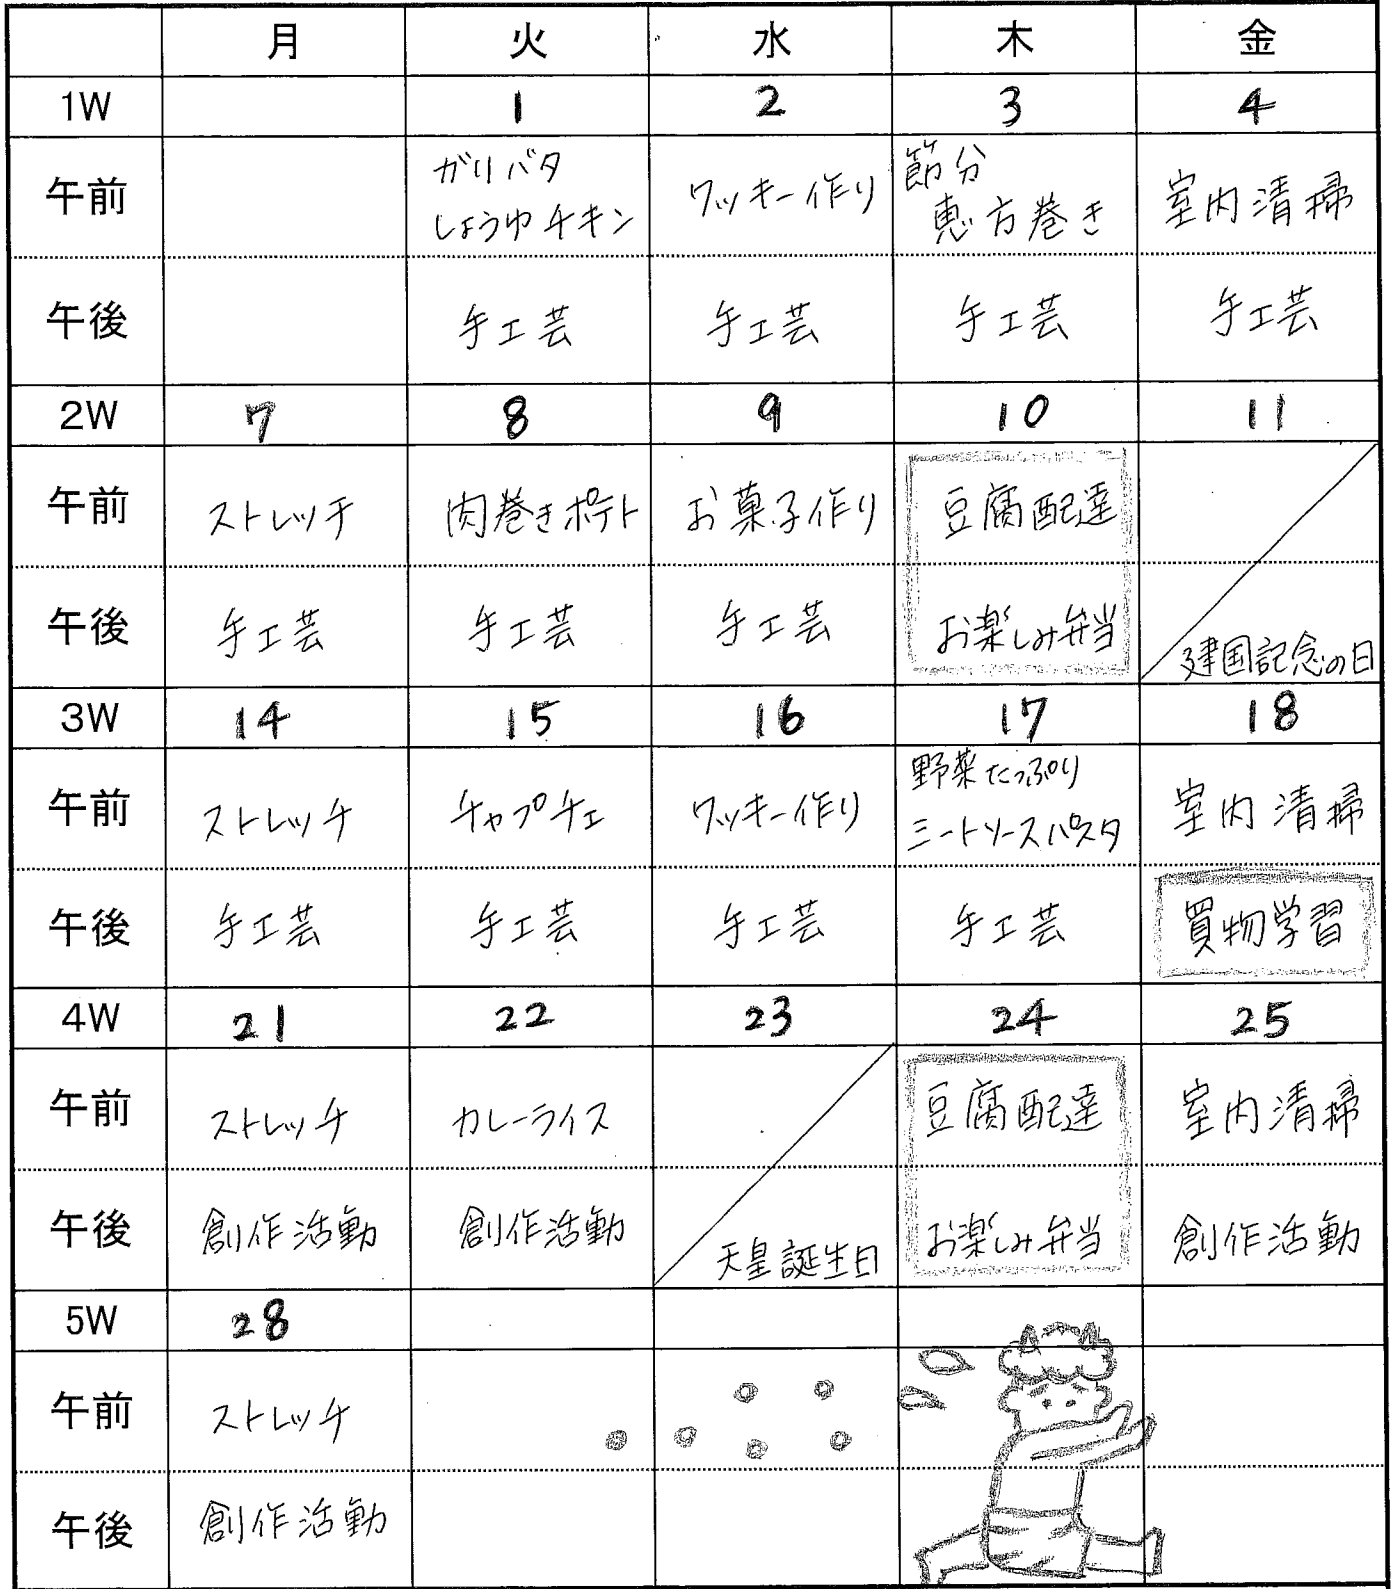 月 火 水 木 金
1W 1 2 3 4
午前 ガリバタ しょうゆチキン クッキー作り 節分 恵方巻き 室内清掃
午後 手工芸 手工芸 手工芸 手工芸
2W 7 8 9 10 11
午前 ストレッチ 肉巻きポテト お菓子作り 豆腐配達
午後 手工芸 手工芸 手工芸 お楽しみ弁当 建国記念の日
3W 14 15 16 17 18
午前 ストレッチ チャプチェ クッキー作り 野菜たっぷり ミートソースパスタ 室内清掃
午後 手工芸 手工芸 手工芸 手工芸 買物学習
4W 21 22 23 24 25
午前 ストレッチ カレーライス 豆腐配達 室内清掃
午後 創作活動 創作活動 天皇誕生日 お楽しみ弁当 創作活動
5W 28
午前 ストレッチ
午後 創作活動